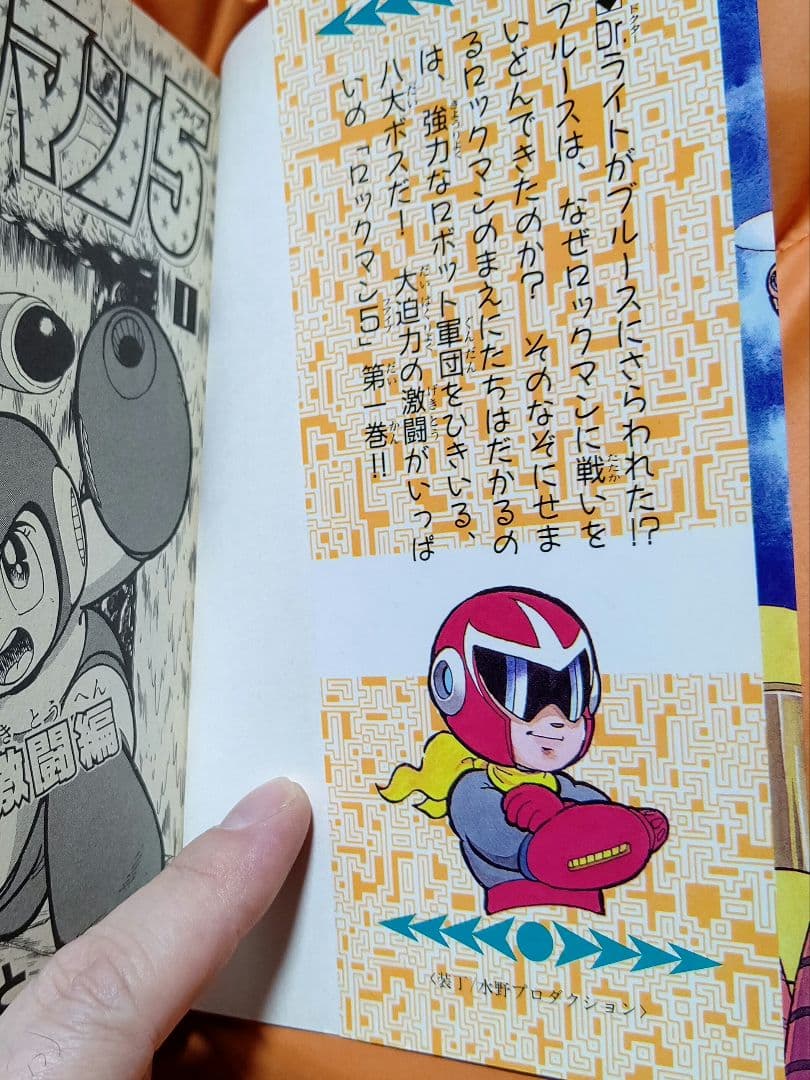 ◆Dr.ライトがブルースにさらわれた!?
ブルースは、なぜロックマンに戦いを
いどんできたのか？　そのなぞにせま
るロックマンのまえにたちはだかるの
は、強力なロボット軍団をひきいる、
八大ボスだ！　大迫力の激闘がいっぱ
いの「ロックマン5」第一巻!!
〈装丁/水野プロダクション〉
マン5
ファイブ
1
激闘編